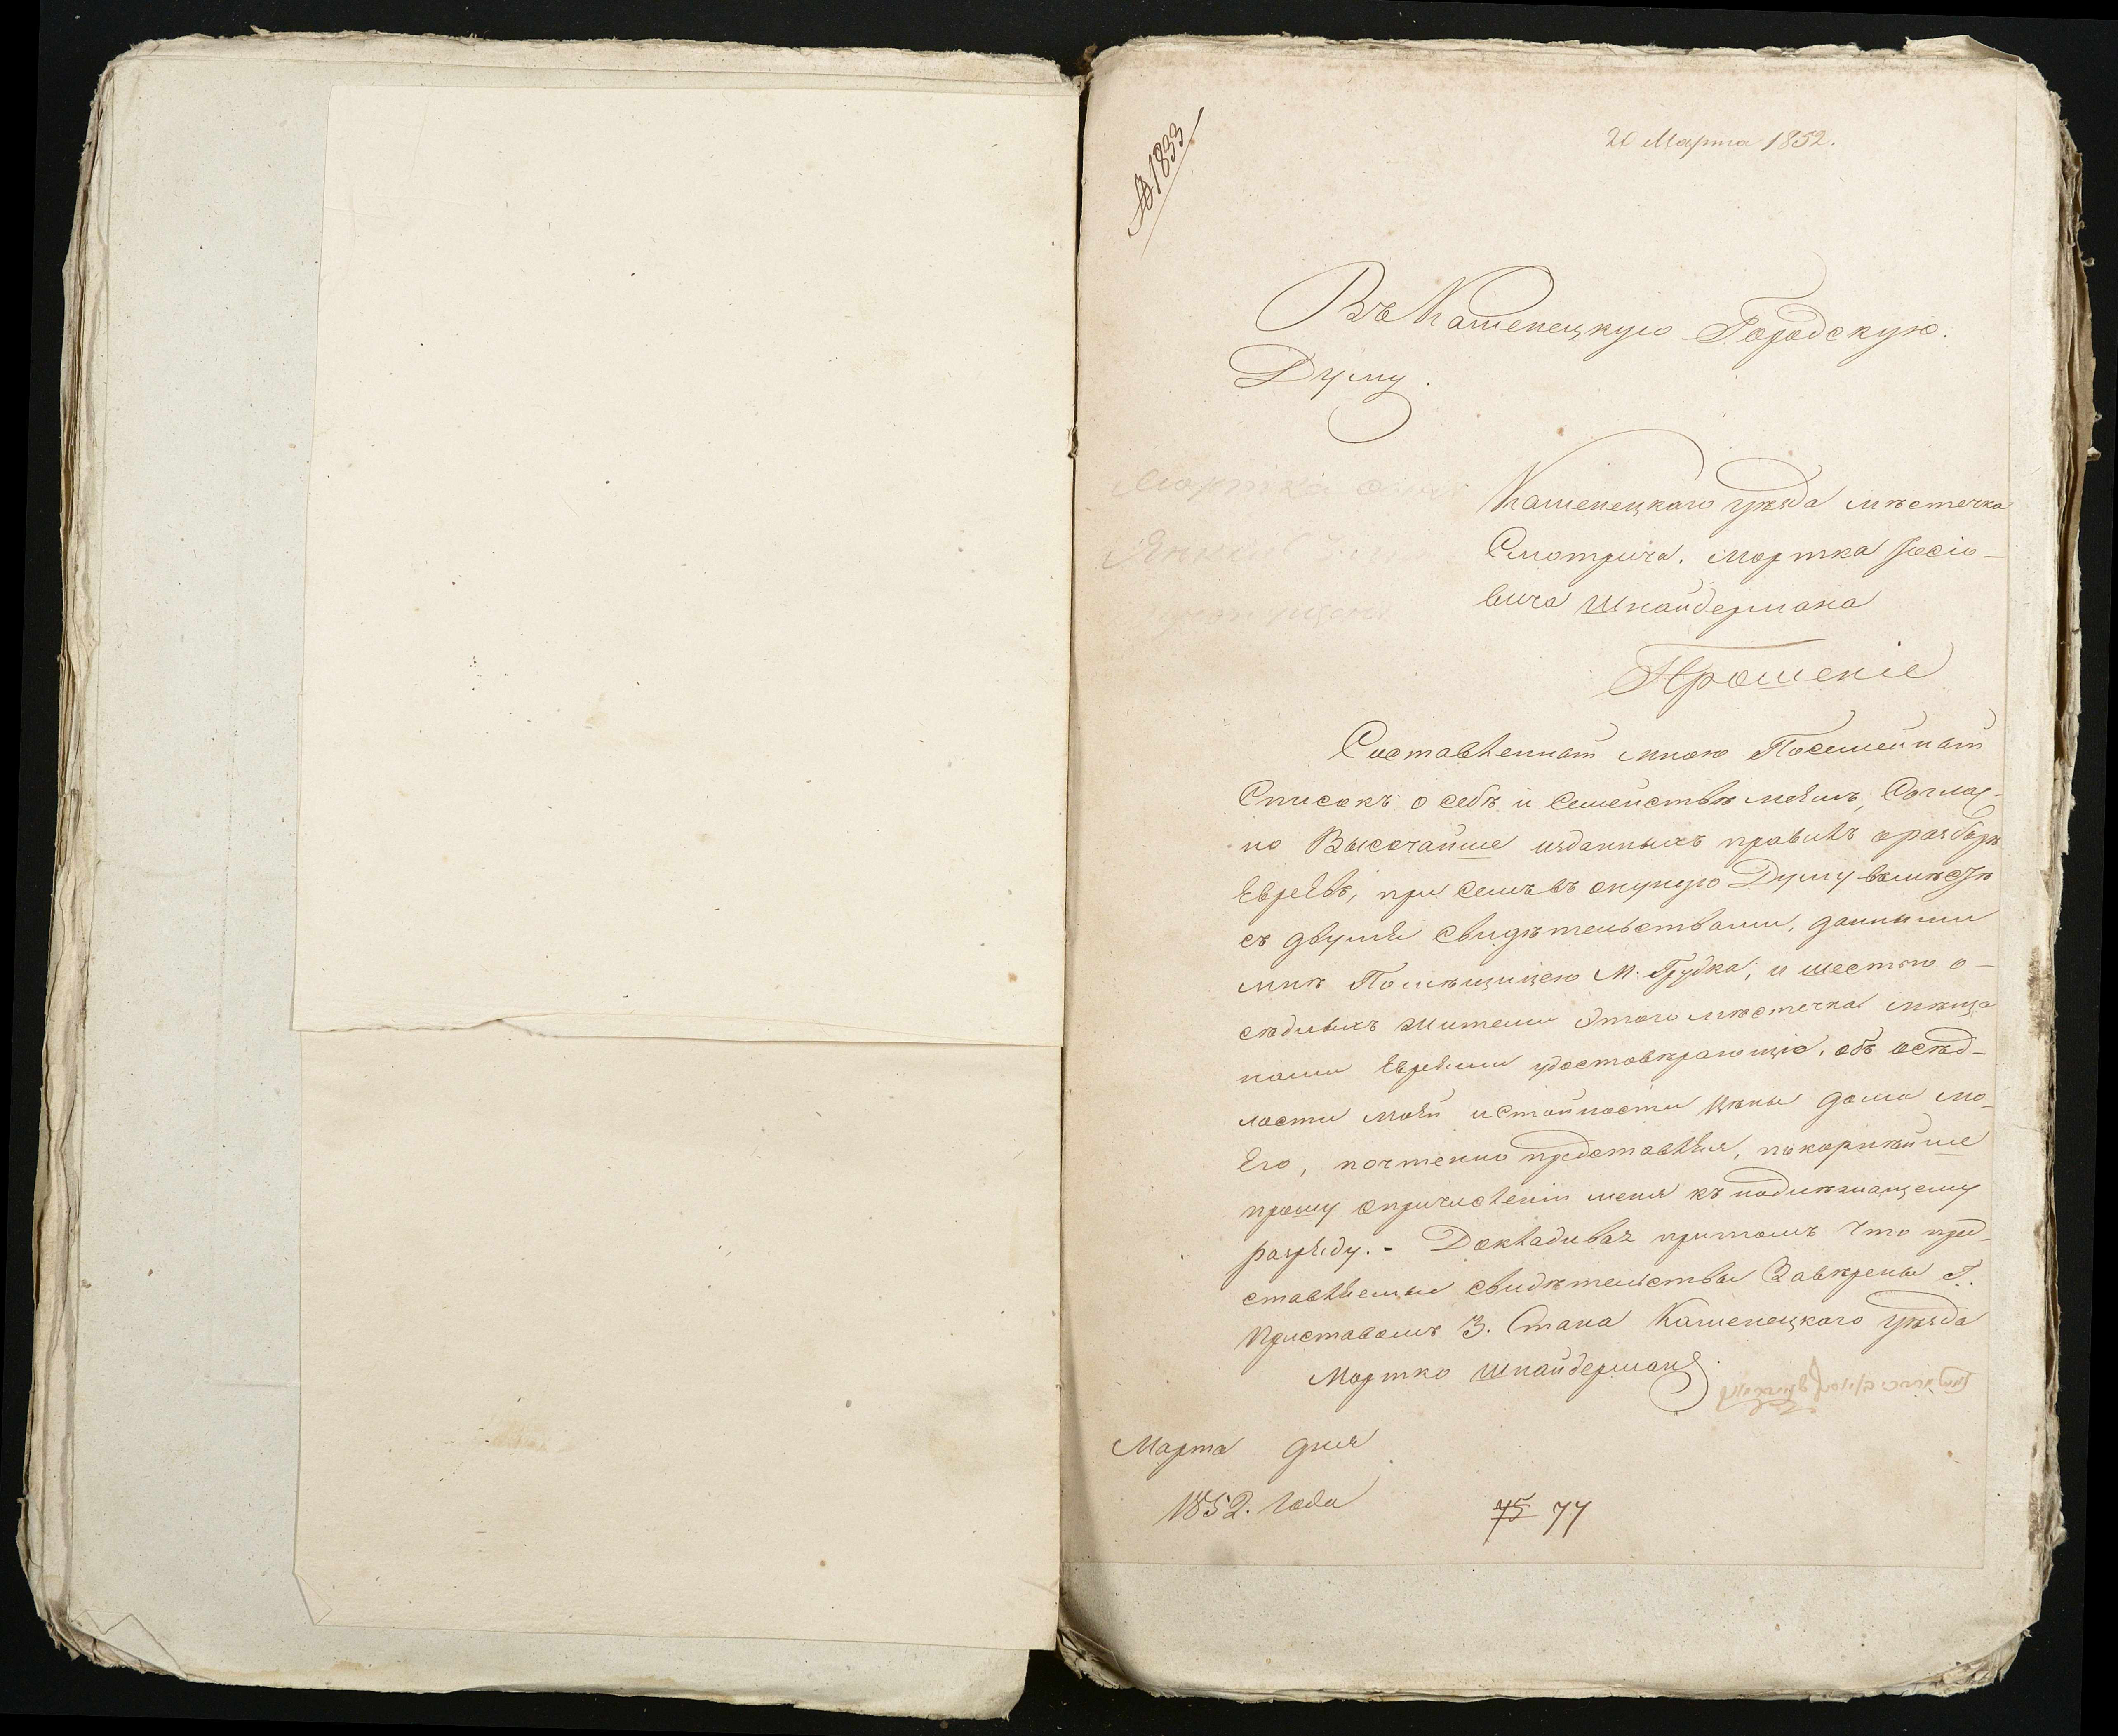 № 1833
20 Марта 1852.
Въ Каменецкую Городскую.
Думу.
Каменецкаго уѣзда мѣстечка
Смотрича. Мортка Іосіо-
вича Шпайдермана
Прошеніе
Составленный мною Посемейный
Списокъ о себѣ и Семействѣ моемъ, Соглас-
но Высочайше изданныхъ правилъ о разборѣ
Евреевъ, при семъ въ оную Думу вомѣстѣ
съ двумя свидѣтельствами, данними
мнѣ Помѣщицею М. Грудка, и шестью о-
сѣдлыхъ жители этого мѣстечка мѣща
нами Евреями удостовѣряющіе, объ осѣд-
лости моей и стойности цѣны дома мо-
его, почтенно представляя, покорнѣйше
прошу о причисленіи меня къ подлѣжащему
разряду. - Докладивая притомъ что пред-
ставляемые свидѣтельства Завѣрены Г.
Приставомъ 3. Стана Каменецкаго уѣзда
Мортко Шпайдерманъ.
Марта дня
1852. года
75 77